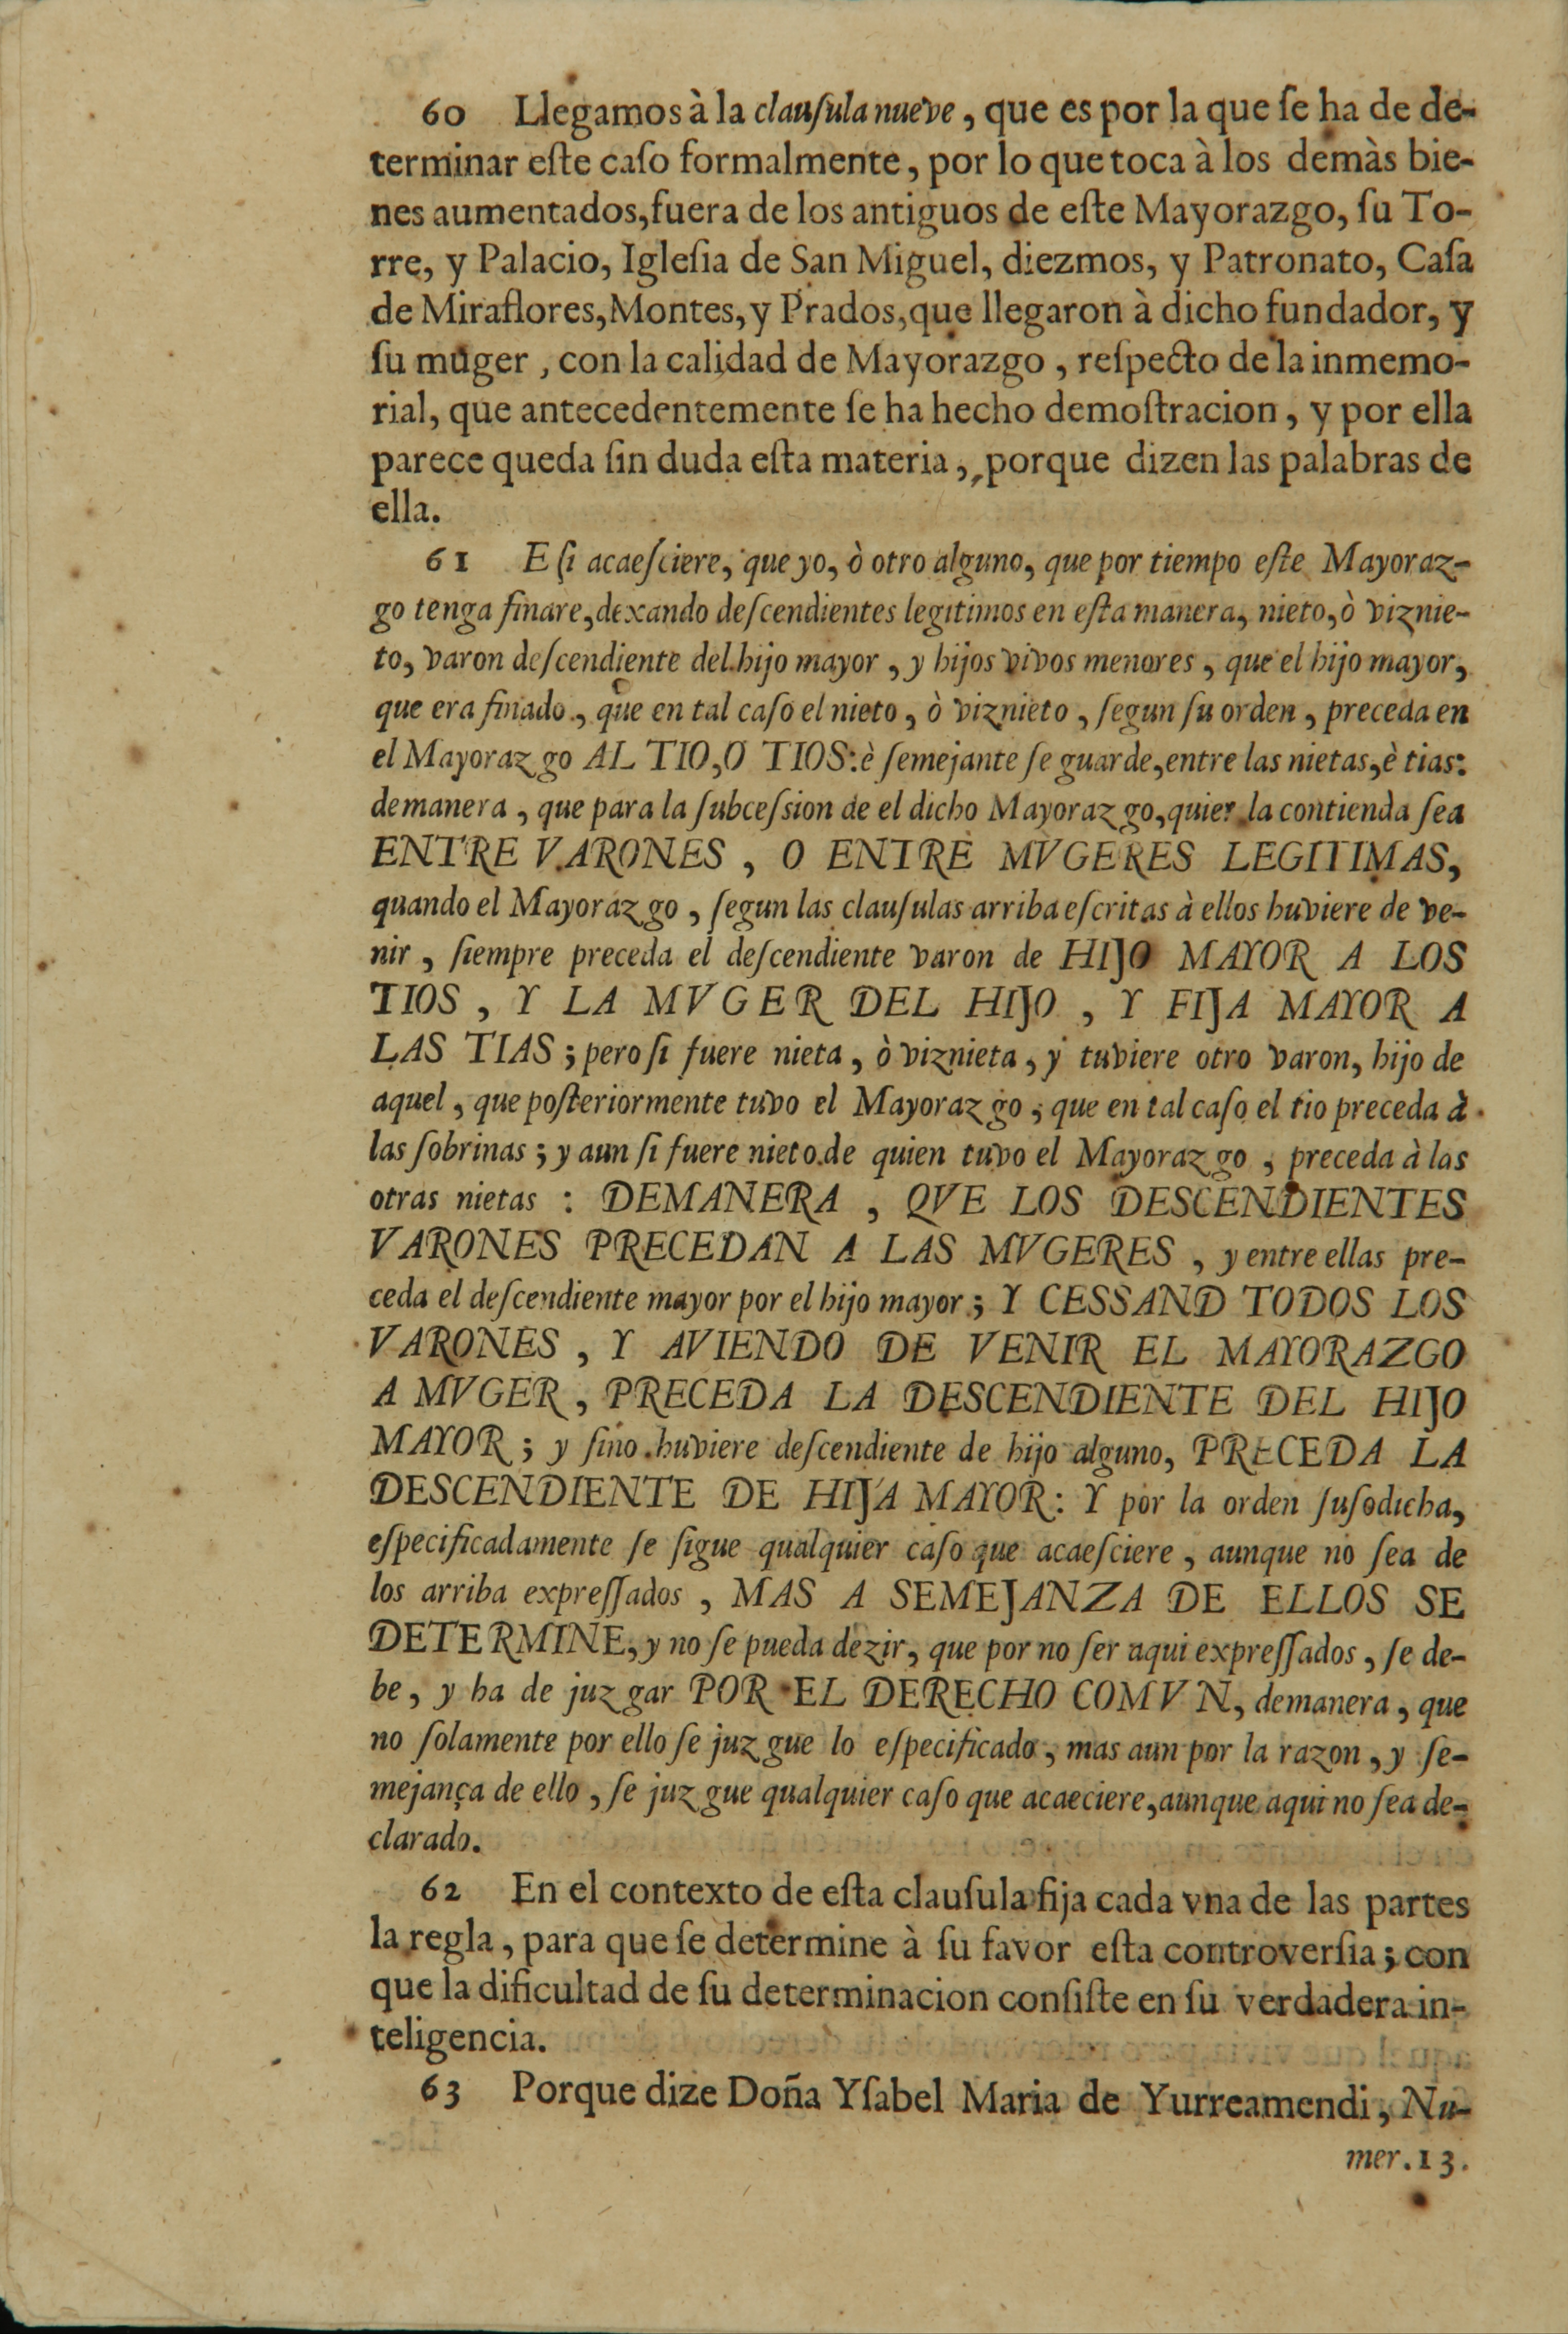 60 Llegamos à la clauſula nueve, que es por la que ſe ha de de-
terminar eſte caſo formalmente, por lo que toca à los demàs bie-
nes aumentados, fuera de los antiguos de eſte Mayorazgo, ſu To-
rre, y Palacio, Igleſia de San Miguel, diezmos, y Patronato, Caſa
de Miraflores, Montes, y Prados, que llegaron à dicho fundador, y
ſu muger, con la calidad de Mayorazgo, reſpecto de la inmemo-
rial, que antecedentemente ſe ha hecho demoſtracion, y por ella
parece queda ſin duda eſta materia, porque dizen las palabras de
ella.
61 E ſi acaeſciere, que yo, ò otro alguno, que por tiempo eſte Mayoraz-
go tenga finare, dexando deſcendientes legitimos en eſta manera, nieto, ò viznie-
to, varon deſcendiente del hijo mayor, y hijos vivos menores, que el hijo mayor,
que era finado, que en tal caſo el nieto, ò viznieto, ſegun ſu orden, preceda en
el Mayorazgo AL TIO, O TIOS: è ſemejante ſe guarde, entre las nietas, è tias:
demanera, que para la ſubceſsion de el dicho Mayorazgo, quier la contienda ſea
ENTRE VARONES, O ENTRE MVGERES LEGITIMAS,
quando el Mayorazgo, ſegun las clauſulas arriba eſcritas à ellos huviere de ve-
nir, ſiempre preceda el deſcendiente varon de HIJO MAYOR A LOS
TIOS, Y LA MVGER DEL HIJO, Y FIJA MAYOR A
LAS TIAS; pero ſi fuere nieta, ò viznieta, y tuviere otro varon, hijo de
aquel, que poſteriormente tuvo el Mayorazgo; que en tal caſo el tio preceda à
las ſobrinas; y aun ſi fuere nieto de quien tuvo el Mayorazgo, preceda à las
otras nietas: DEMANERA, QVE LOS DESCENDIENTES
VARONES PRECEDAN A LAS MVGERES, y entre ellas pre-
ceda el deſcendiente mayor por el hijo mayor; Y CESSAND TODOS LOS
VARONES, Y AVIENDO DE VENIR EL MAYORAZGO
A MVGER, PRECEDA LA DESCENDIENTE DEL HIJO
MAYOR; y ſino huviere deſcendiente de hijo alguno, PRECEDA LA
DESCENDIENTE DE HIJA MAYOR: Y por la orden ſuſodicha,
eſpecificadamente ſe ſigue qualquier caſo que acaeſciere, aunque no ſea de
los arriba expreſſados, MAS A SEMEJANZA DE ELLOS SE
DETERMINE, y no ſe pueda dezir, que por no ſer aqui expreſſados, ſe de-
be, y ha de juzgar POR EL DERECHO COMVN, demanera, que
no ſolamente por ello ſe juzgue lo eſpecificado, mas aun por la razon, y ſe-
mejança de ello, ſe juzgue qualquier caſo que acaeciere, aunque aqui no ſea de-
clarado.
62 En el contexto de eſta clauſula fija cada vna de las partes
la regla, para que ſe determine à ſu favor eſta controverſia; con
que la dificultad de ſu determinacion conſiſte en ſu verdadera in-
teligencia.
63 Porque dize Doña Yſabel Maria de Yurreamendi, Nu-
mer. 13.